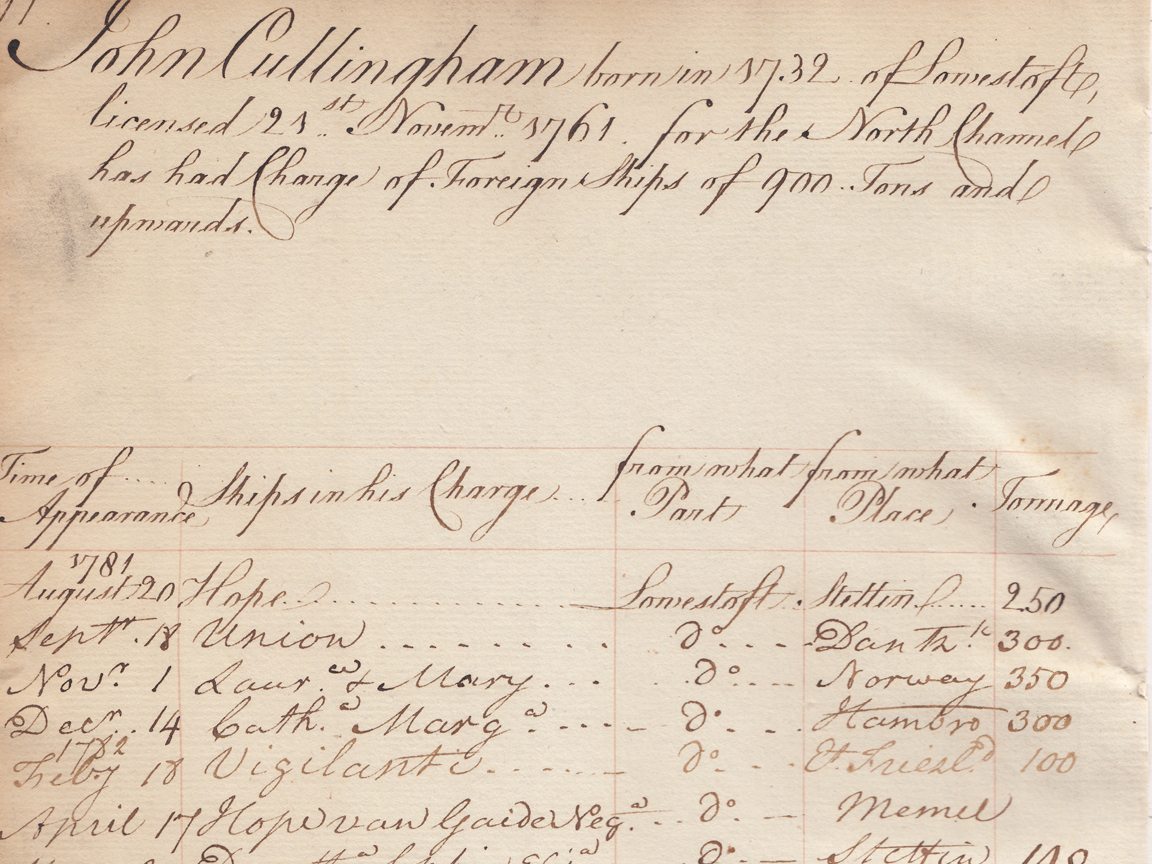 John Cullingham born in 1732 of Lowestoft,
licensed 21st Novemr. 1761. for the North Channel
has had Charge of Foreign Ships of 900 Tons and
upwards.
Time of Appearance Ships in his Charge from what Part from what Place Tonnage
1781
August 20 Hope Lowestoft Stettin 250
Septr. 18 Union Do Dantzk. 300.
Novr. 1 Laur.ce & Mary Do Norway 350
Decr. 14 Cath.a Marg.a Do Hambro 300
1782
Feby 18 Vigilante Do Et. Friesld. 100
April 17 Hope van Do Memel
Do Stettin